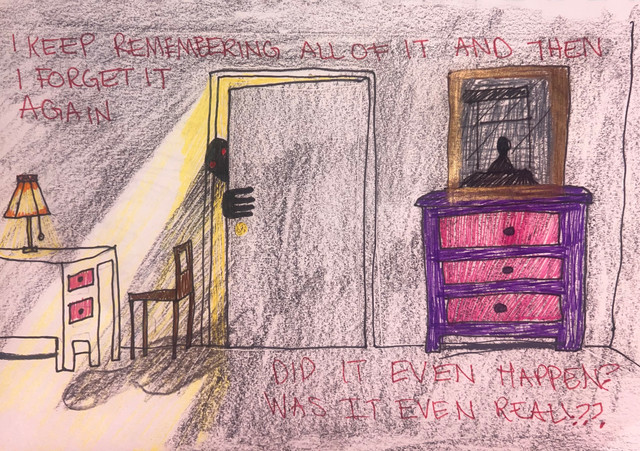 I KEEP REMEMBERING ALL OF IT AND THEN
I FORGET IT
AGAIN
DID IT EVEN HAPPEN?
WAS IT EVEN REAL???